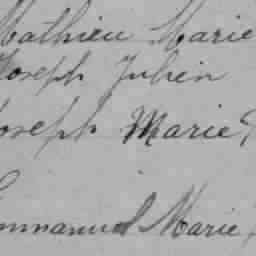 Mathieu Marie
Joseph Julien
Joseph Marie
Emmanuel Marie